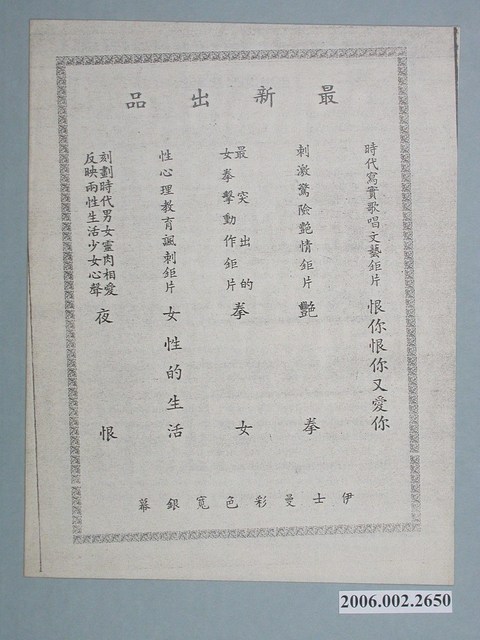 最新出品
時代寫實歌唱文藝鉅片 恨你恨你又愛你
刺激驚險艷情鉅片 艷拳
最突出的
女拳擊動作鉅片 拳女
性心理教育諷刺鉅片 女性的生活
刻劃時代男女靈肉相愛
反映兩性生活少女心聲 夜恨
伊士曼彩色寬銀幕
2006.002.2650